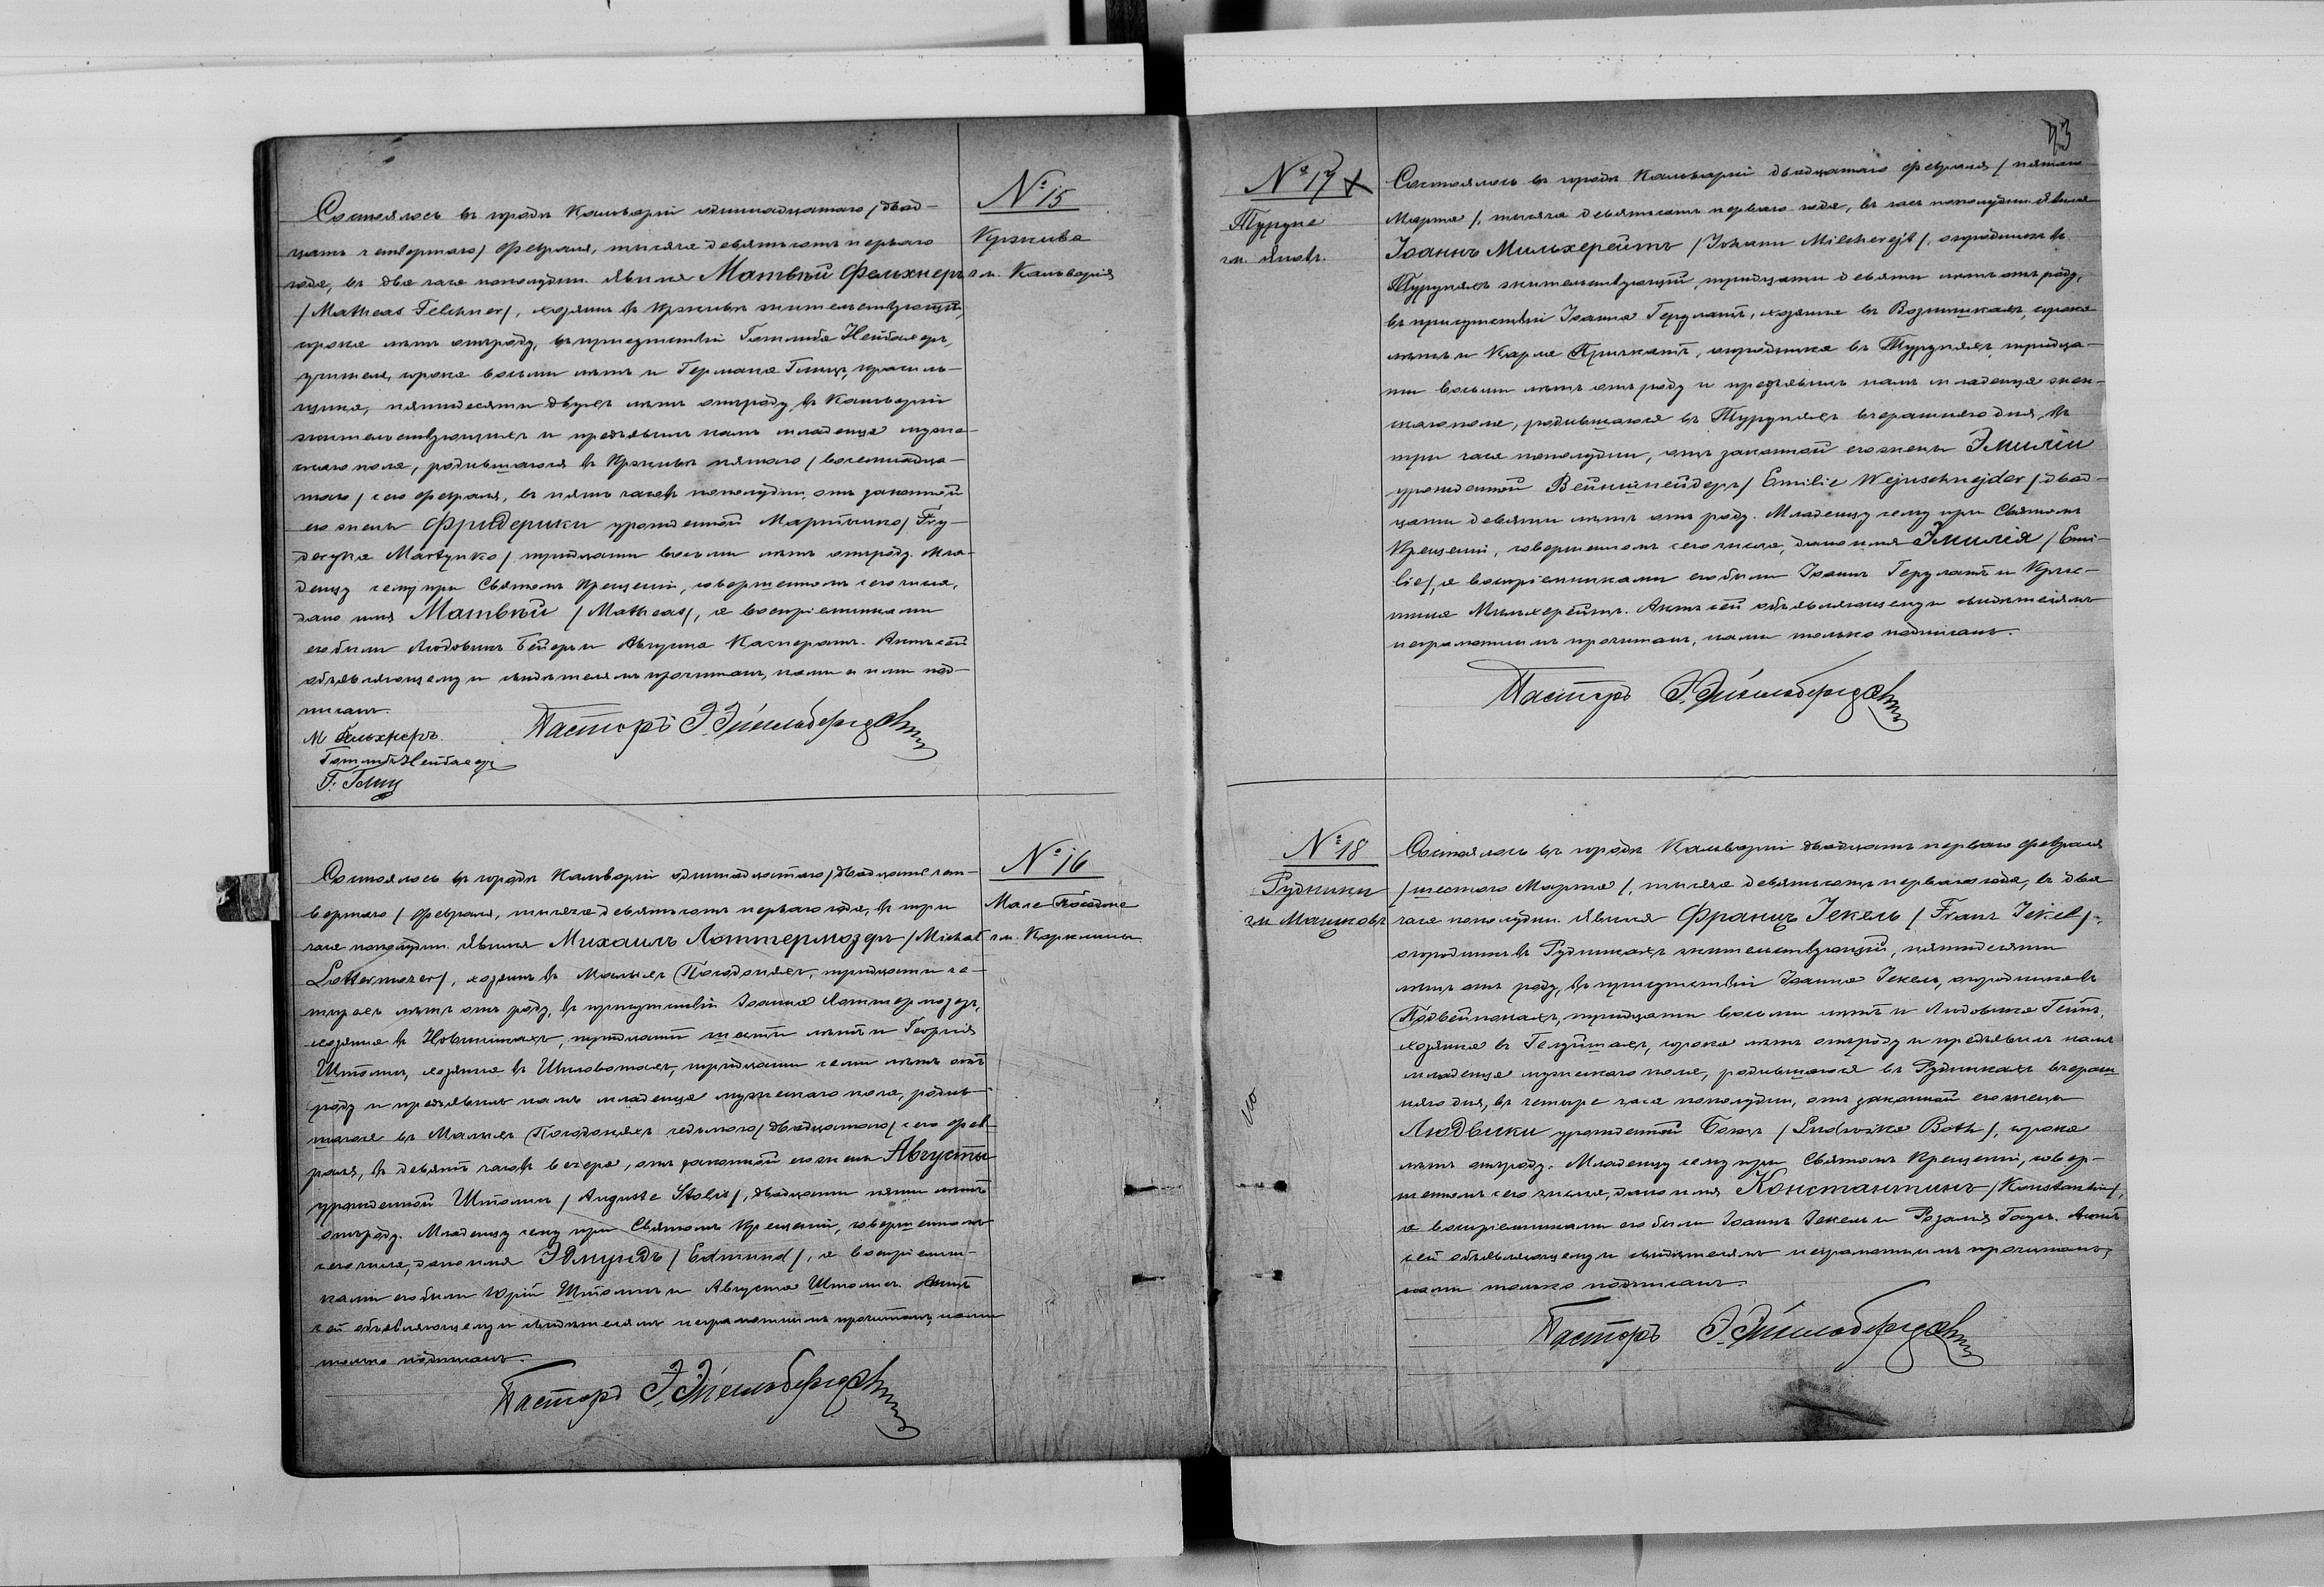 № 15
Кржива
гм. Кальварія
Состоялось въ городѣ Кальваріи одиннадцатаго / двад-
цать четвертаго / Февраля, тысяча девятьсотъ перваго
года, въ два часа пополудни. Явился Матвѣй Фельхнеръ
/ Matheas Felchner /, хозяинъ въ Крживѣ жительствующій,
сорока лѣтъ отъ роду, въ присутствіи Готлиба Нейбауеръ,
учителя, сорока восьми лѣтъ и Германа Глицъ, красиль-
щика, пятидесяти двухъ лѣтъ отъ роду, въ Кальваріи
жительствующихъ и предъявилъ намъ младенца муже-
скаго пола, родившагося въ Крживѣ пятаго / восемнадца-
таго / сего Февраля, въ пять часовъ пополудни, отъ законной
его жены Фридерики урожденной Мартынко / Fry-
deryka Martynko / тридцати восьми лѣтъ отъ роду. Мла-
денцу сему при Святомъ Крещеніи, совершенномъ сего числа,
дано имя Матвѣй / Matheas /, а воспріемниками
его были Людовикъ Бейеръ и Августа Касператъ. Актъ сей
объявляющему и свидѣтелямъ прочитанъ, нами и ими под-
писанъ.
М Фельхнеръ
Готлибъ Нейбауеръ
Г. Глиц
Пасторъ
№ 16
Мале
гм.
Состоялось въ городѣ Кальваріи одиннадцатаго / двадцать чет-
вертаго / Февраля, тысяча девятьсотъ перваго года, въ три
часа пополудни. Явился Михаилъ Лоттермозеръ / Michał
Lottermozer /, хозяинъ въ Малыхъ тридцати че-
тырехъ лѣтъ отъ роду, въ присутствіи Іоанна Лоттермозеръ,
хозяина въ Новиникахъ, тридцати шести лѣтъ и Георгія
Штолисъ, хозяина въ тридцати семи лѣтъ отъ
роду и предъявилъ намъ младенца мужескаго пола, родив-
шагося въ Малыхъ седьмаго / двадцатаго / сего Фев-
раля, въ девять часовъ вечера, отъ законной его жены Августы
урожденной Штолисъ / Auguste Stolis /, двадцати пяти лѣтъ
отъ роду. Младенцу сему при Святомъ Крещеніи, совершенномъ
сего числа, дано имя Эдмундъ / Edmund /, а воспріемни-
ками его были Юрій Штолисъ и Августа Штолисъ. Актъ
сей объявляющему и свидѣтелямъ неграмотнымъ прочитанъ, нами
только подписанъ.
Пасторъ
93
№ 17 ✗
Турупе
гм. Яновъ.
Состоялось въ городѣ Кальваріи двадцатаго Февраля / пятаго
Марта /, тысяча девятьсотъ перваго года, въ часъ пополудни. Явился
Іоаннъ Мильхерейтъ / Johann Milcherejt /, огородникъ въ
Турупяхъ жительствующій, тридцати девяти лѣтъ отъ роду,
въ присутствіи Іоанна Герулатъ, хозяина въ сорока
лѣтъ и Карла огородника въ Турупяхъ тридца-
ти восьми лѣтъ отъ роду и предъявилъ намъ младенца жен-
скаго пола, родившагося въ Турупяхъ вчерашняго дня, въ
три часа пополудни, отъ законной его жены Эмиліи
урожденной Вейншнейдеръ / Emilie Wejnschnejder / двад-
цати девяти лѣтъ отъ роду. Младенцу сему при Святомъ
Крещеніи, совершенномъ сего числа, дано имя Эмилія / Emi-
lie /, а воспріемниками его были Іоаннъ Герулатъ и Крис-
тина Мильхерейтъ. Актъ сей объявляющему и свидѣтелямъ
неграмотнымъ прочитанъ, нами только подписанъ.
Пасторъ
№ 18
Рудники
гм.
Состоялось въ городѣ Кальваріи двадцать перваго Февраля
/ шестаго Марта /, тысяча девятьсотъ перваго года, въ два
часа пополудни. Явился Францъ Іекель / Franz Jekel /,
огородникъ въ Рудникахъ жительствующій, пятидесяти
лѣтъ отъ роду, въ присутствіи Іоанна Іекель, огородника въ
тридцати восьми лѣтъ и Людовика
хозяина въ сорока лѣтъ отъ роду и предъявилъ намъ
младенца мужескаго пола, родившагося въ Рудникахъ вчераш
няго дня, въ четыре часа пополудни, отъ законной его жены
Людвики урожденной Ботъ / Ludwika Both /, сорока
лѣтъ отъ роду. Младенцу сему при Святомъ Крещеніи, совер-
шенномъ сего числа, дано имя Константинъ / Konstantin /,
а воспріемниками его были Іоаннъ Іекель и Розалія Актъ
сей объявляющему и свидѣтелямъ неграмотнымъ прочитанъ,
нами только подписанъ.
Пасторъ